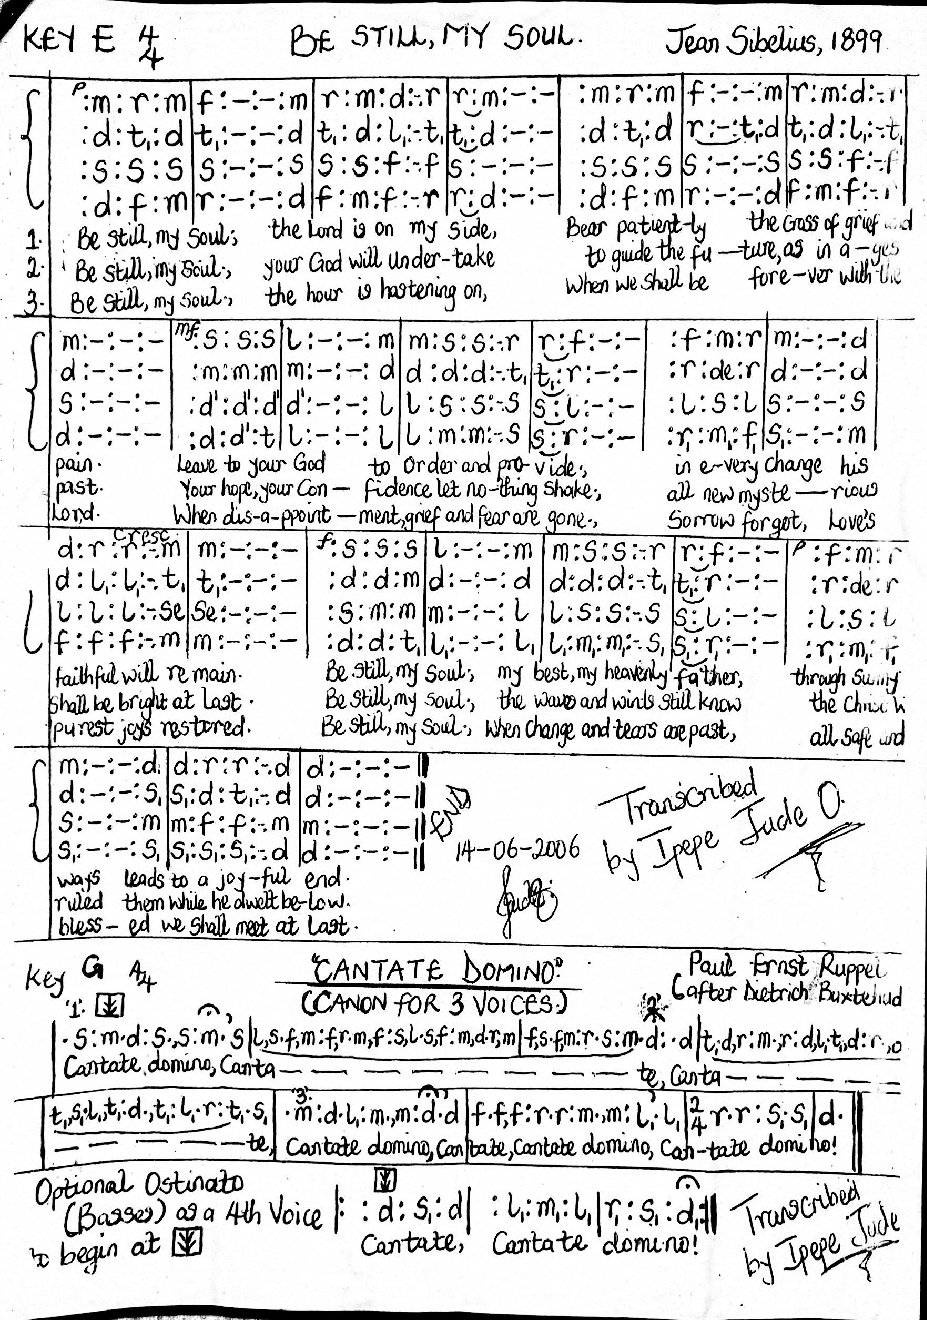 KEY E 4/4 BE STILL, MY SOUL. Jean Sibelius, 1899
p :m:r:m|f:-:-:m|r:m:d:-r|r:m:-:-| :m:r:m|f:-:-:m|r:m:d:-r
:d:t,:d|t,:-:-:d|t,:d:l,:-t,|t,:d:-:-| :d:t,:d|r:-:t,:d|t,:d:l,:-t,
:s:s:s|s:-:-:s|s:s:f:-f|s:-:-:-| :s:s:s|s:-:-:s|s:s:f:-f
:d:f:m|r:-:-:d|f:m:f:-r|r:d:-:-| :d:f:m|r:-:-:d|f:m:f:-r
1. Be still, my soul; the Lord is on my side, Bear patient-ly the Cross of grief and
2. Be still, my soul; your God will under-take to guide the fu—ture, as in a-ges
3. Be still, my soul; the hour is hastening on, When we shall be fore-ver with the
m:-:-:-|mf :s:s:s|l:-:-:m|m:s:s:-r|r:f:-:-| :f:m:r|m:-:-:d
d:-:-:-| :m:m:m|m:-:-:d|d:d:d:-t,|t,:r:-:-| :r:de:r|d:-:-:d
s:-:-:-| :d':d':d'|d':-:-:l|l:s:s:-s|s:l:-:-| :l:s:l|s:-:-:s
d:-:-:-| :d:d':t|l:-:-:l|l:m:m:-s|s:r:-:-| :r,:m,:f,|s,:-:-:m
pain. Leave to your God to order and pro-vide; in e-very change his
past. Your hope, your Con—fidence let no-thing shake; all new myste—rious
Lord. When dis-a-ppoint—ment, grief and fear are gone, Sorrow forgot, Love's
Cresc
d:r:r:-m|m:-:-:-|f :s:s:s|l:-:-:m|m:s:s:-r|r:f:-:-|p :f:m:r
d:l,:l,:-t,|t,:-:-:-| :d:d:m|d:-:-:d|d:d:d:-t,|t,:r:-:-| :r:de:r
l:l:l:-se|se:-:-:-| :s:m:m|m:-:-:l|l:s:s:-s|s:l:-:-| :l:s:l
f:f:f:-m|m:-:-:-| :d:d:t,|l,:-:-:l,|l,:m,:m,:-s,|s,:r,:-:-| :r,:m,:f,
faithful will re main. Be still, my soul; my best, my heavenly father, through
shall be bright at last. Be still, my soul; the waves and winds still know the
purest joys restored. Be still, my soul; When change and tears are past, all safe and
m:-:-:d|d:r:r:-d|d:-:-:-||
d:-:-:s,|s,:d:t,:-d|d:-:-:-||
s:-:-:m|m:f:f:-m|m:-:-:-||
s,:-:-:s,|s,:s,:s,:-d|d:-:-:-||
END
14-06-2006
Transcribed
by Ipepe Jude O.
ways leads to a joy-ful end.
ruled them while he dwelt be-low.
bless-ed we shall meet at last.
Key G 4/4 "CANTATE DOMINO" Paul Ernst Ruppel
(CANON FOR 3 VOICES) (after Dietrich Buxtehud
'1.
|.s:m.d:s.,s:m.s|l,s.f,m:f,r.m,f:s,l.s,f:m,d.r,m|f,s.f,m:r.s:m.d:.d|t,,d,r:m.,r:d,l,.t,,d:r.,
Cantate domino, Canta— te, Canta—
t,,s,.l,,t,:d.,t,:l,.r:t,.s,|3. .m:d.l,:m.,m:d.d|f.f,f:r.r:m.,m:l,.l,|2/4 r.r:s,.s,|d.||
te, Cantate domino, Cantate, Cantate domino, Can-tate domino!
Optional Ostinato
(Basses) as a 4th Voice |: :d:s,:d| :l,:m,:l,|r,:s,:d,:||
to begin at Cantate, Cantate domino!
Transcribed
by Ipepe Jude